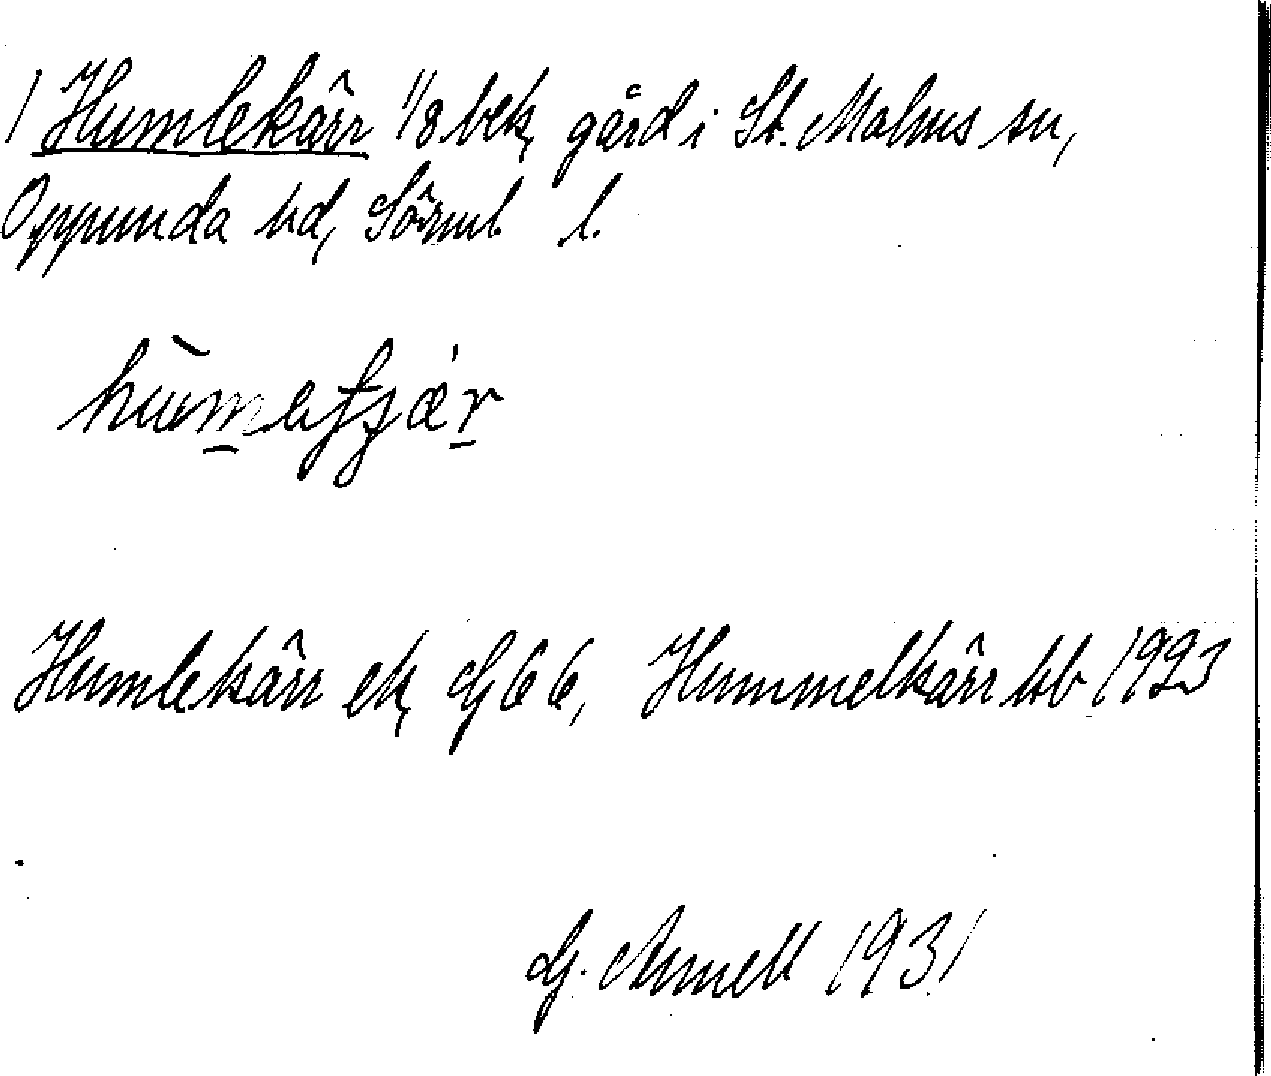 1 Humlekärr 1/8 bek, gård i St. Malms sn,
Oppunda hd, Sörml. l.
Humlekärr ek, G 66, Hummelkärr hb 1923
G. Arnell 1931